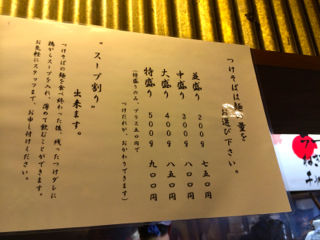 つけそばは麺の量を
お選び下さい。
並盛り 200g 七五〇円
中盛り 300g 八〇〇円
大盛り 400g 八五〇円
特盛り 500g 九〇〇円
(特盛りのみ、プラス五〇円で
つけだれが、おかわりできます)
"スープ割り"
出来ます。
つけそばの麺を食べ終わった後、残ったつけダレに
鶏がらスープを入れ、薄めて飲むことができます。
お気軽にスタッフまで、お申し付けください。